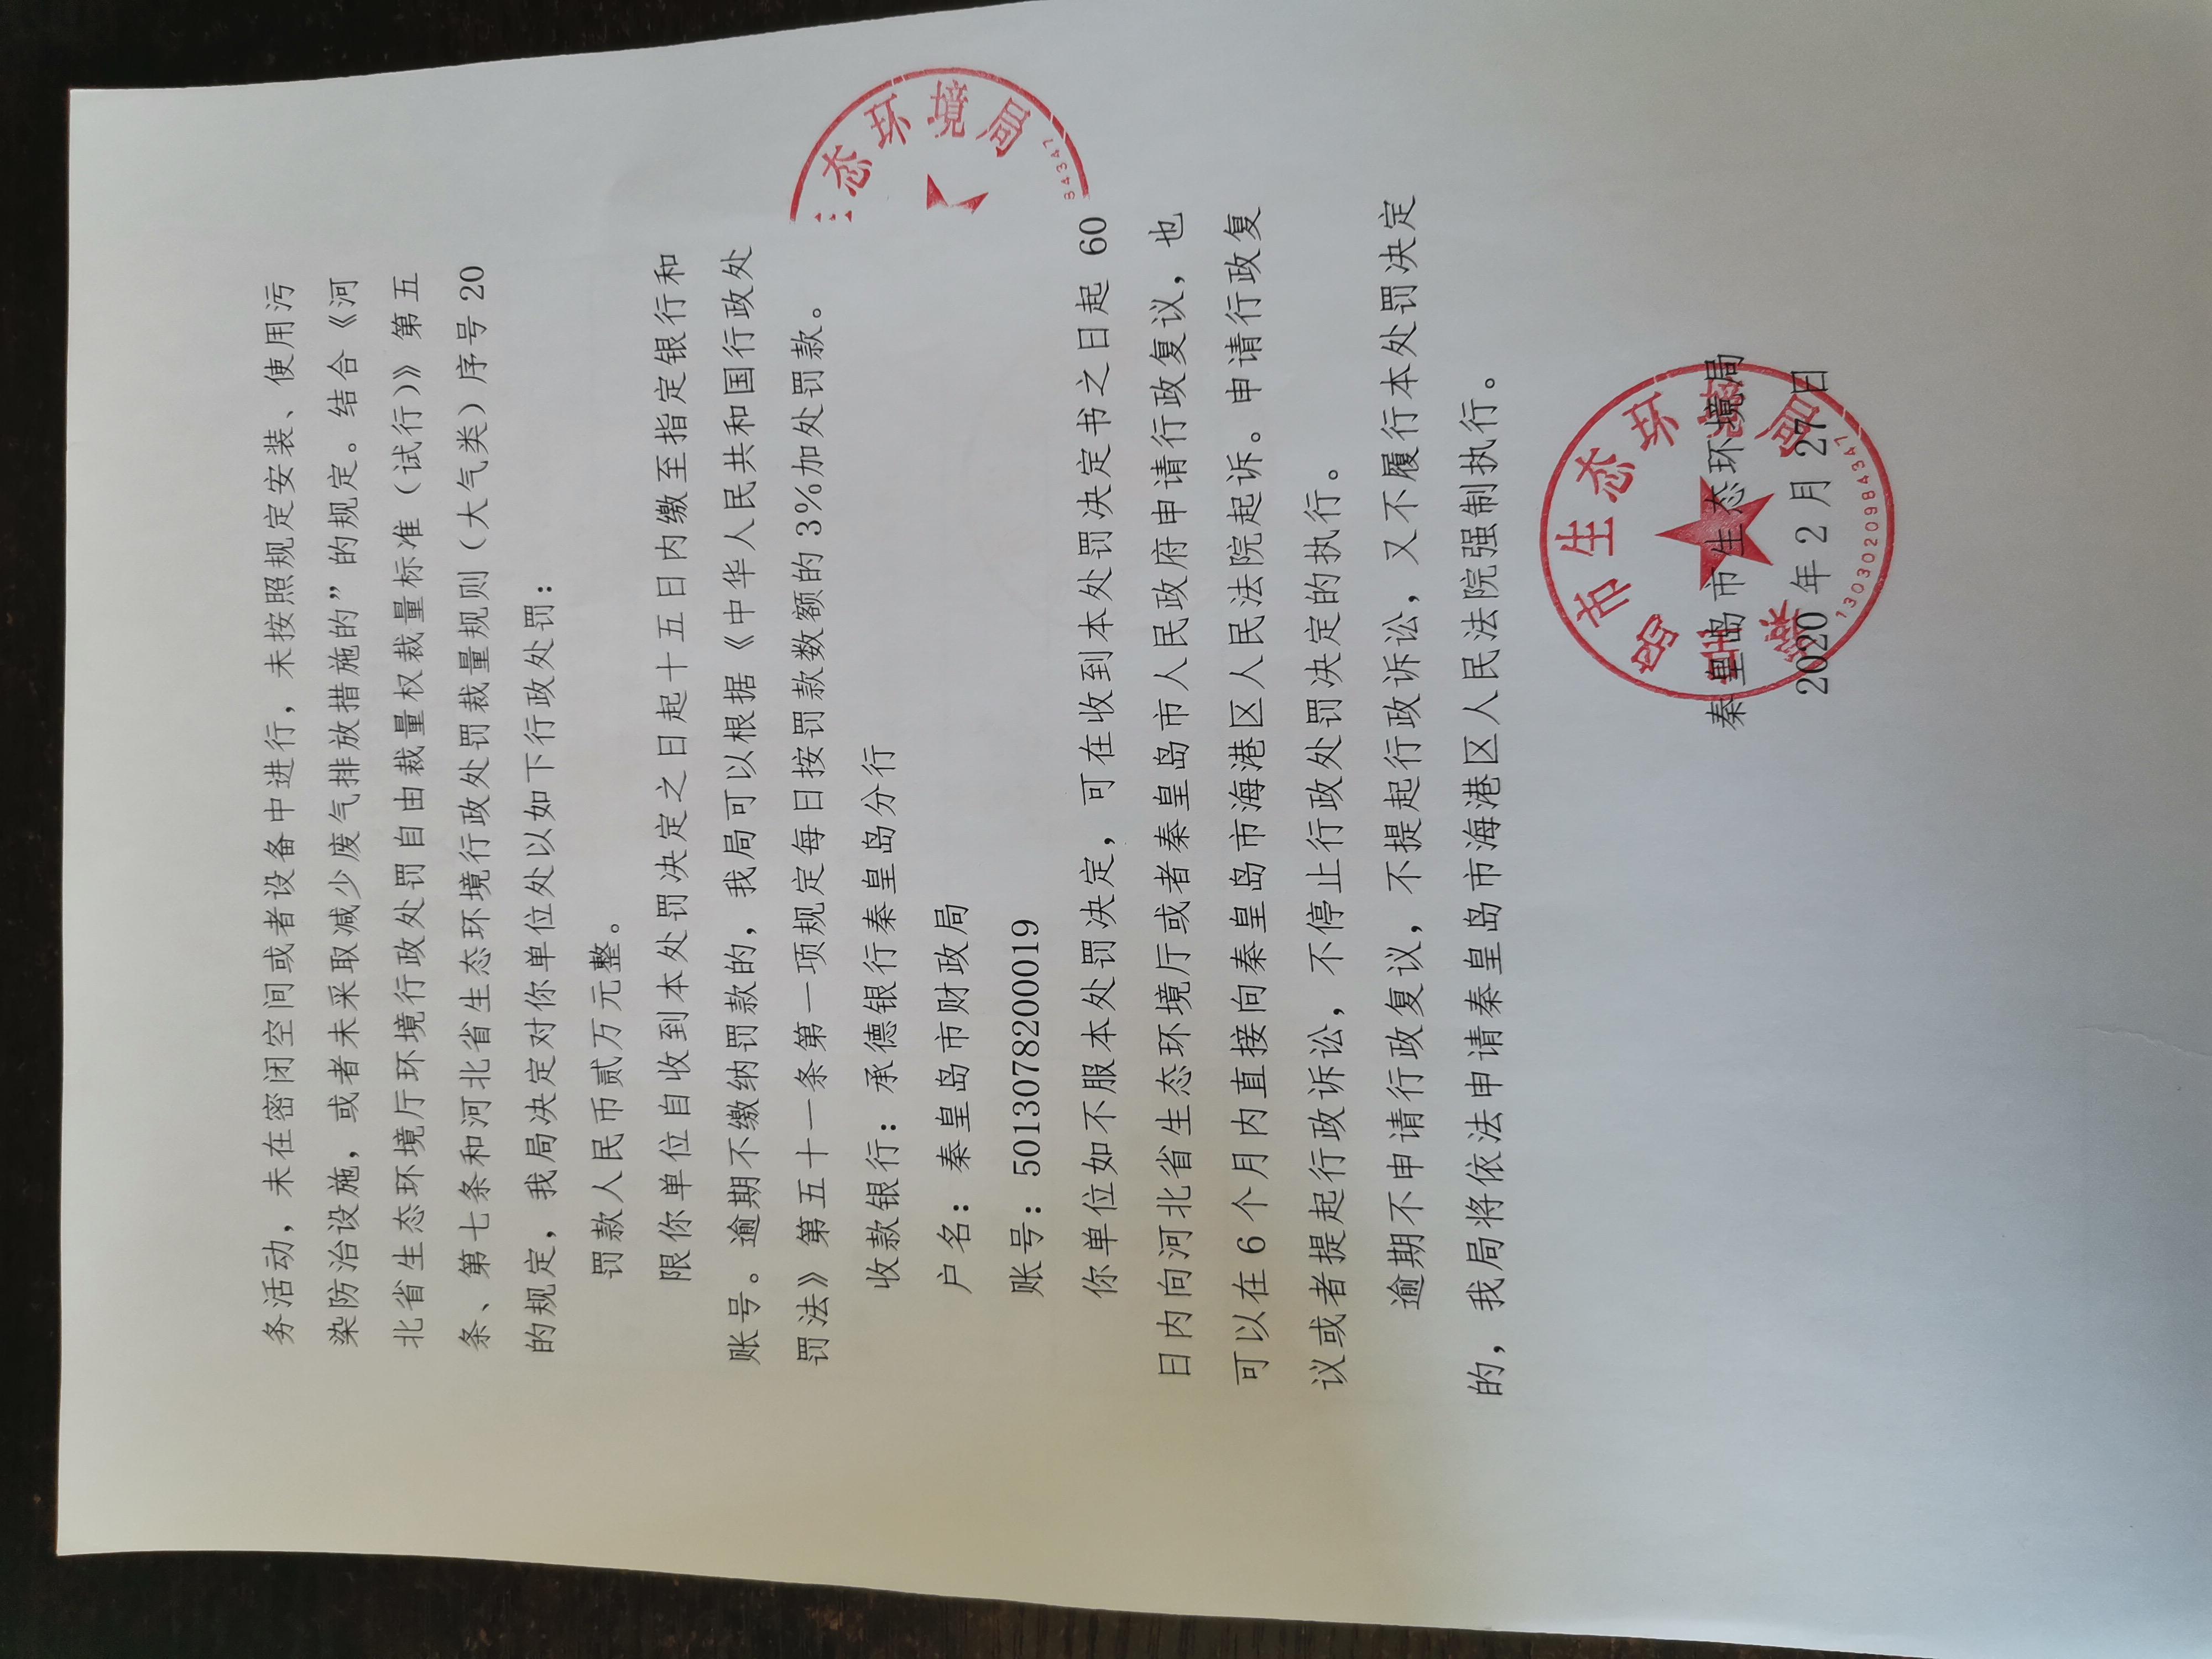 务活动，未在密闭空间或者设备中进行，未按照规定安装、使用污
染防治设施，或者未采取减少废气排放措施的”的规定。结合《河
北省生态环境厅环境行政处罚自由裁量权裁量标准（试行）》第五
条、第七条和河北省生态环境行政处罚裁量规则（大气类）序号 20
的规定，我局决定对你单位处以如下行政处罚：
罚款人民币贰万元整。
限你单位自收到本处罚决定之日起十五日内缴至指定银行和
账号。逾期不缴纳罚款的，我局可以根据《中华人民共和国行政处
罚法》第五十一条第一项规定每日按罚款数额的 3%加处罚款。
收款银行：承德银行秦皇岛分行
户名：秦皇岛市财政局
账号：50130782000019
态环境局
84347
你单位如不服本处罚决定，可在收到本处罚决定书之日起 60
日内向河北省生态环境厅或者秦皇岛市人民政府申请行政复议，也
可以在 6 个月内直接向秦皇岛市海港区人民法院起诉。申请行政复
议或者提起行政诉讼，不停止行政处罚决定的执行。
逾期不申请行政复议，不提起行政诉讼，又不履行本处罚决定
的，我局将依法申请秦皇岛市海港区人民法院强制执行。
秦皇岛市生态环境局
2020 年 2 月 27 日
秦皇岛市生态环境局
1303020984347